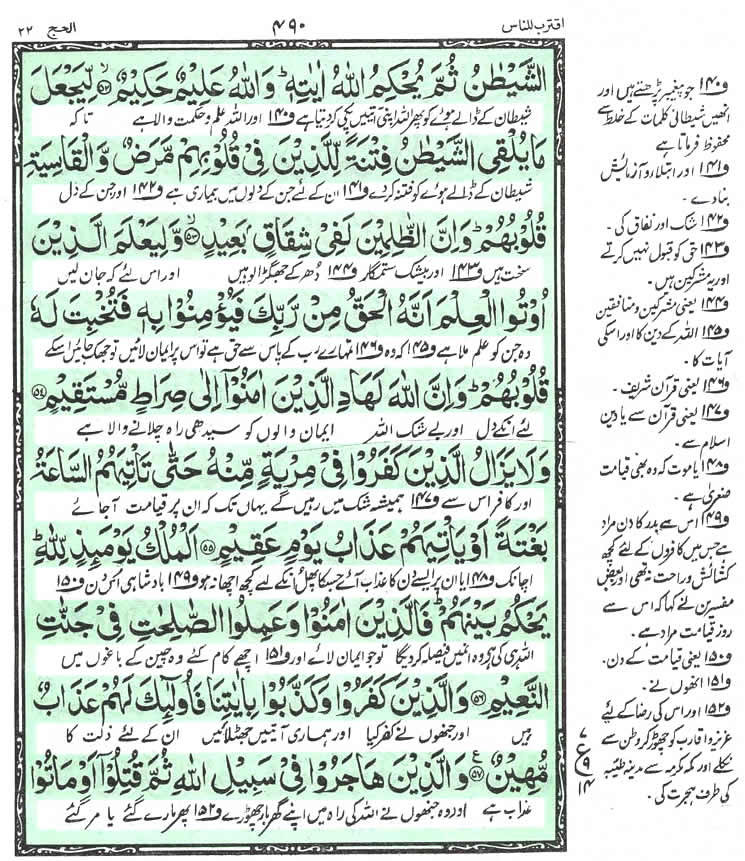 اقترب للناس
۴۹۰
الحج ۲۲
الشَّيْطٰنُ ثُمَّ يُحْكِمُ اللّٰهُ اٰيٰتِهٖ ؕ وَاللّٰهُ عَلِيْمٌ حَكِيْمٌ ۙ﴿۵۲﴾ لِّيَجْعَلَ
شیطان کے ڈالے ہوئے کو پھر اللہ اپنی آیتیں پکی کر دیتا ہے ف۱۴۰ اور اللہ علم و حکمت والا ہے تا کہ
مَا يُلْقِى الشَّيْطٰنُ فِتْنَةً لِّلَّذِيْنَ فِىْ قُلُوْبِهِمْ مَّرَضٌ وَّالْقَاسِيَةِ
شیطان کے ڈالے ہوئے کو فتنہ کر دے ف۱۴۱ ان کے لئے جن کے دلوں میں بیماری ہے ف۱۴۲ اور جن کے دل
قُلُوْبُهُمْ ؕ وَاِنَّ الظّٰلِمِيْنَ لَفِىْ شِقَاقٍۭ بَعِيْدٍ ۙ﴿۵۳﴾ وَّلِيَعْلَمَ الَّذِيْنَ
سخت ہیں ف۱۴۳ اور بیشک ستمگار ف۱۴۴ دُھر کے جھگڑالو ہیں اور اس لئے کہ جان لیں
اُوْتُوا الْعِلْمَ اَنَّهُ الْحَقُّ مِنْ رَّبِّكَ فَيُؤْمِنُوْا بِهٖ فَتُخْبِتَ لَهٗ
وہ جن کو علم ملا ہے ف۱۴۵ کہ وہ ف۱۴۶ تمہارے رب کے پاس سے حق ہے تو اس پر ایمان لائیں تو جھک جائیں اسکے
قُلُوْبُهُمْ ؕ وَاِنَّ اللّٰهَ لَهَادِ الَّذِيْنَ اٰمَنُوْۤا اِلٰى صِرَاطٍ مُّسْتَقِيْمٍ ﴿۵۴﴾
لئے انکے دل اور بے شک اللہ ایمان والوں کو سیدھی راہ چلانے والا ہے
وَلَا يَزَالُ الَّذِيْنَ كَفَرُوْا فِىْ مِرْيَةٍ مِّنْهُ حَتّٰى تَاْتِيَهُمُ السَّاعَةُ
اور کافر اس سے ف۱۴۷ ہمیشہ شک میں رہیں گے یہاں تک کہ ان پر قیامت آ جائے
بَغْتَةً اَوْ يَاْتِيَهُمْ عَذَابُ يَوْمٍ عَقِيْمٍ ﴿۵۵﴾ اَلْمُلْكُ يَوْمَئِذٍ لِّلّٰهِ ؕ
اچانک ف۱۴۸ یا ان پر ایسے دن کا عذاب آئے جسکا پھل انکے لیے کچھ اچھا نہ ہو ف۱۴۹ بادشاہی اُس دن ف۱۵۰
يَحْكُمُ بَيْنَهُمْ ؕ فَالَّذِيْنَ اٰمَنُوْا وَعَمِلُوا الصّٰلِحٰتِ فِىْ جَنّٰتِ
اللہ ہی کی ہے وہ انمیں فیصلہ کر دیگا تو جو ایمان لائے اور ف۱۵۱ اچھے کام کئے وہ چین کے باغوں میں
النَّعِيْمِ ﴿۵۶﴾ وَالَّذِيْنَ كَفَرُوْا وَكَذَّبُوْا بِاٰيٰتِنَا فَاُولٰٓئِكَ لَهُمْ عَذَابٌ
ہیں اور جنھوں نے کفر کیا اور ہماری آیتیں جھٹلائیں ان کے لئے ذلت کا
مُّهِيْنٌ ﴿۵۷﴾ ع وَالَّذِيْنَ هَاجَرُوْا فِىْ سَبِيْلِ اللّٰهِ ثُمَّ قُتِلُوْۤا اَوْ مَاتُوْا
عذاب ہے اور وہ جنھوں نے اللہ کی راہ میں اپنے گھر بار چھوڑے ف۱۵۲ پھر مارے گئے یا مر گئے
ف۱۴۰ جو پیغمبر پڑھتے ہیں اور
انھیں شیطانی کلمات کے خلط سے
محفوظ فرماتا ہے
ف۱۴۱ اور ابتلاء و آزمایش
بنا دے۔
ف۱۴۲ شک اور نفاق کی۔
ف۱۴۳ حق کو قبول نہیں کرتے
اور یہ مشرکین ہیں۔
ف۱۴۴ یعنی مشرکین و منافقین
ف۱۴۵ اللہ کے دین کا اور اسکی
آیات کا۔
ف۱۴۶ یعنی قرآن شریف۔
ف۱۴۷ یعنی قرآن سے یا دین
اسلام سے۔
ف۱۴۸ یا موت کہ وہ بھی قیامت
صغریٰ ہے۔
ف۱۴۹ اس سے بدر کا دن مراد
ہے جس میں کافروں کے لئے کچھ
کشائش و راحت نہ تھی اور بعض
مفسرین نے کہا کہ اس سے
روز قیامت مراد ہے۔
ف۱۵۰ یعنی قیامت کے دن۔
ف۱۵۱ انھوں نے۔
ف۱۵۲ اور اس کی رضا کے لئے
عزیز و اقارب کو چھوڑ کر وطن سے
نکلے اور مکہ مکرمہ سے مدینہ طیبہ
کی طرف ہجرت کی۔
۷
ع۹
۱۴